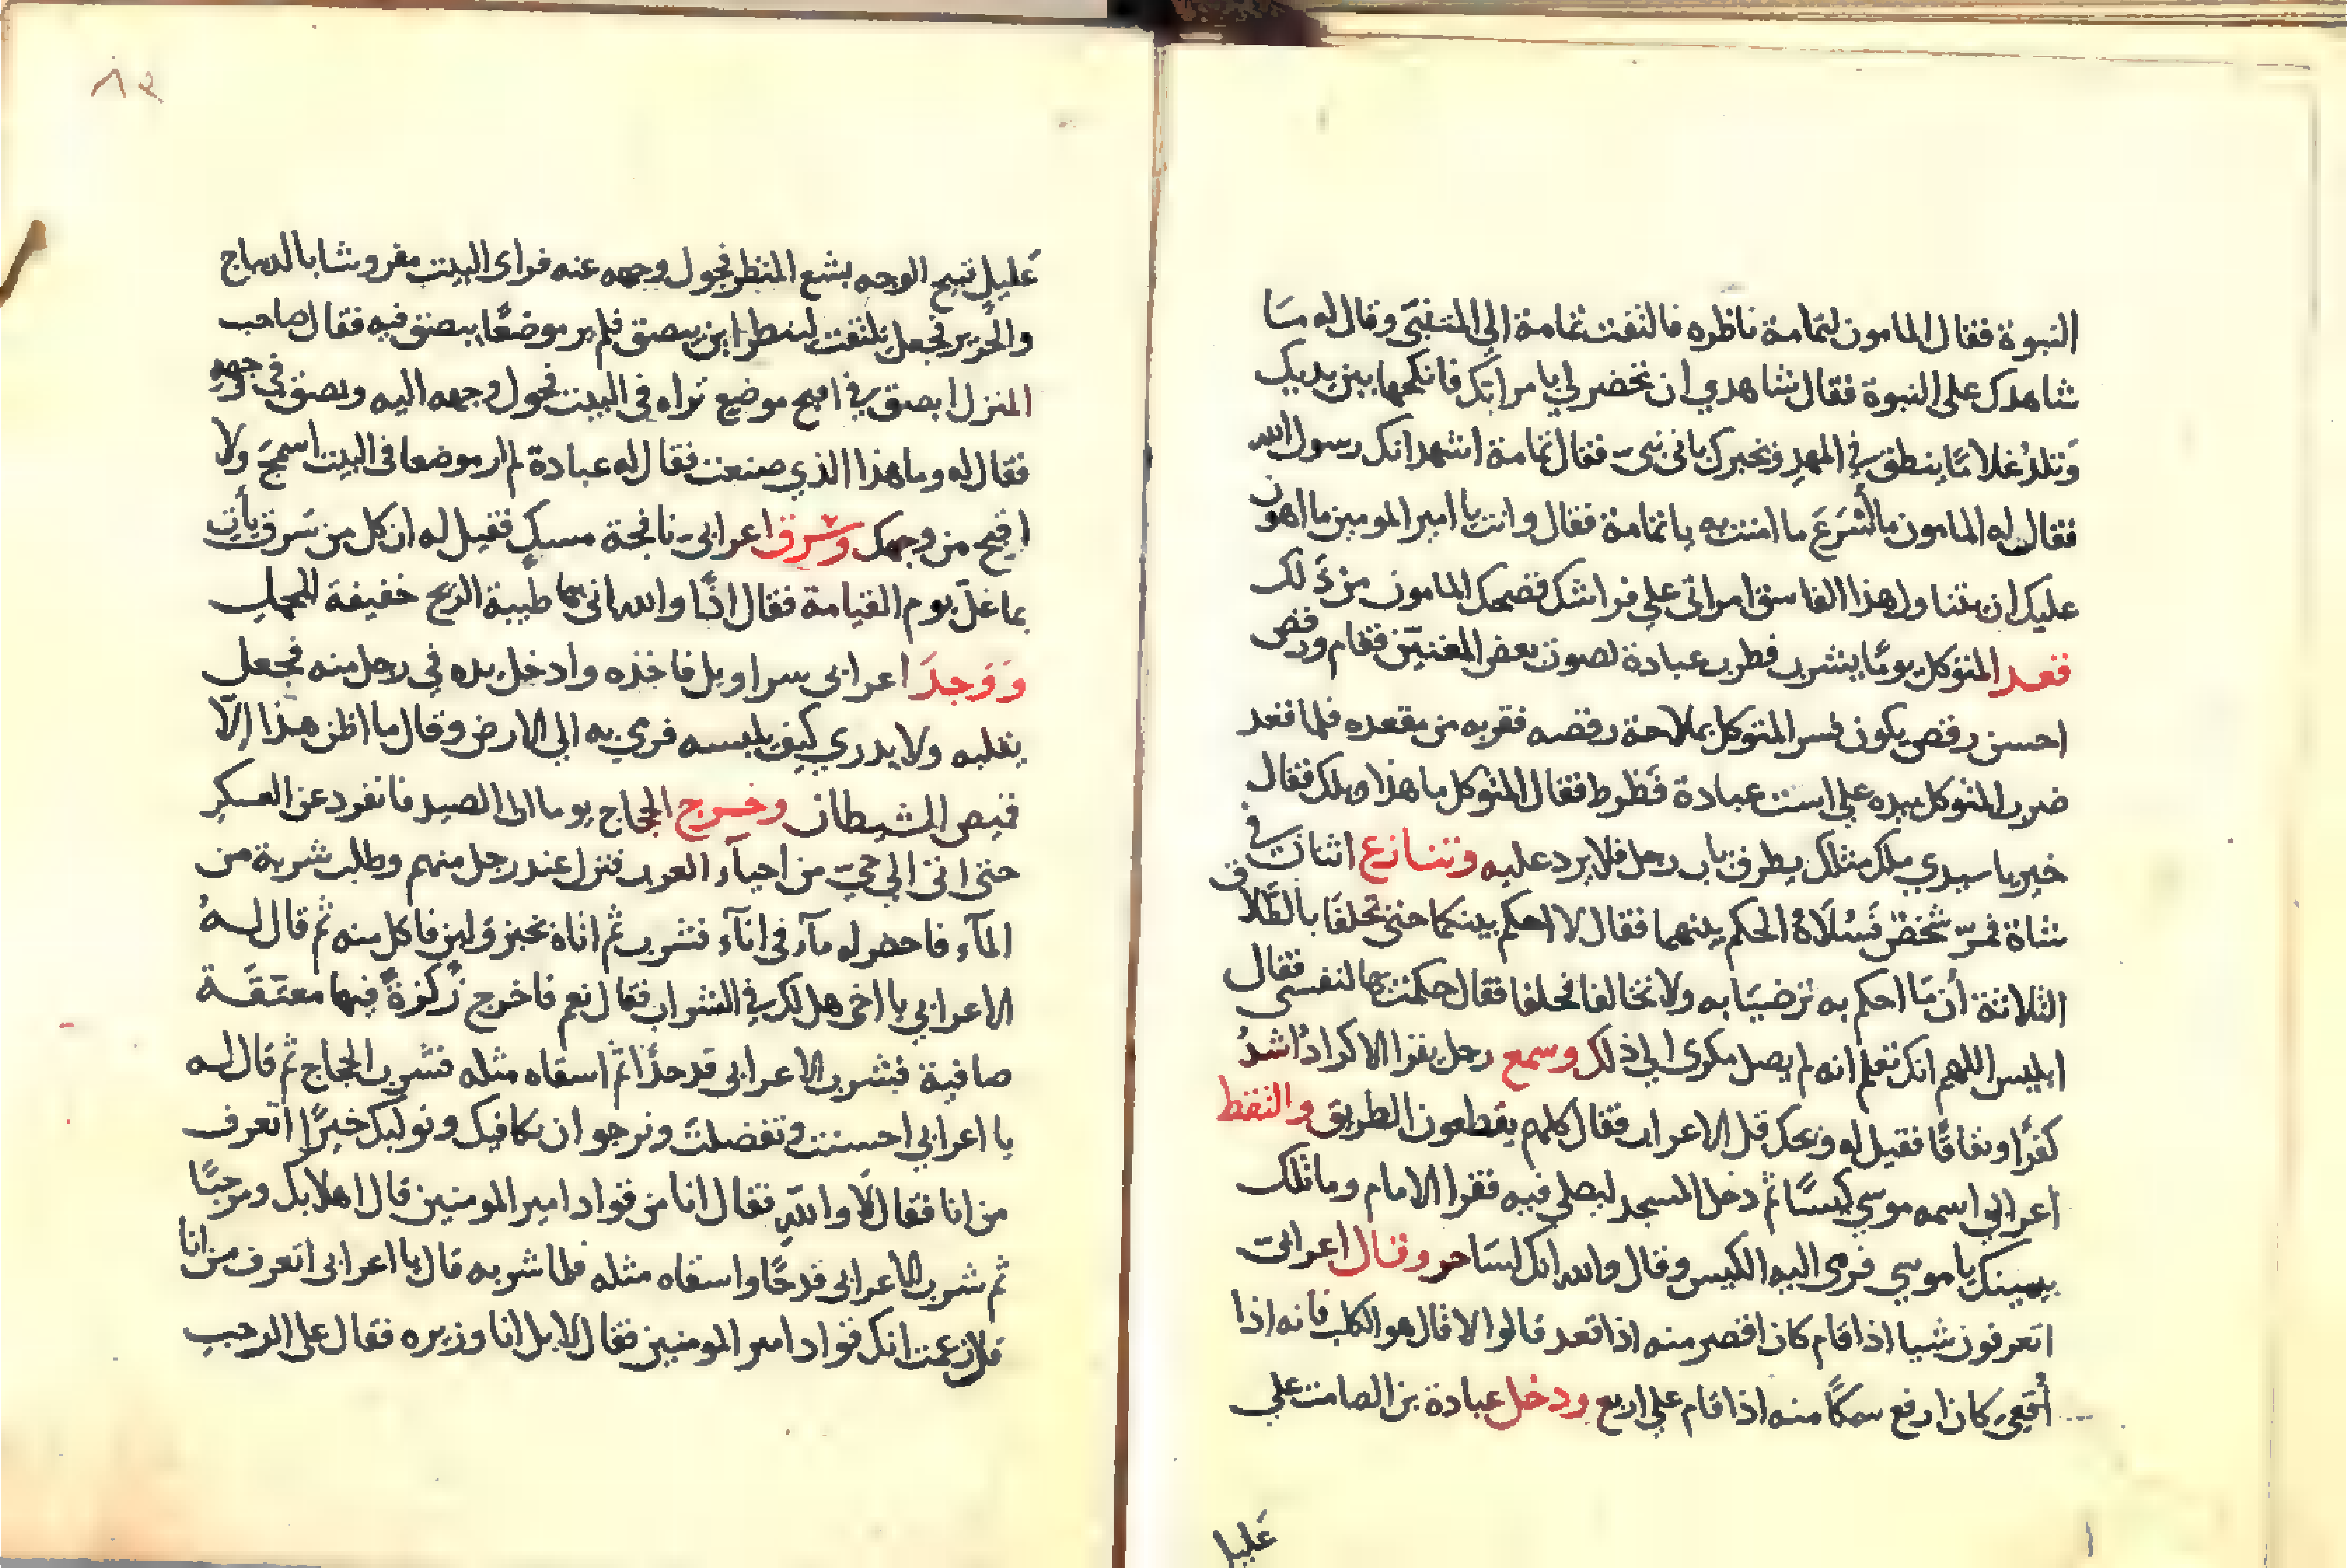 النبوة فقال المامون لثمامة ناظره فالتفت ثمامة الي المتنبّي وقال له مَا
شاهدك علي النبوة فقال شاهدي ان تحضر لي بامراتك فانكحها بين يديك
وَتلدُ غلامًا ينطق في المهدِ ويخبرك باني نبيّ فقال ثمامة اشهد انك رسول الله
فقال له المامون ما اَسْرَعَ ما امنت به يا ثمامة فقال وانت يا امير المومنين ما اهون
عليك ان يتناول هذا الفاسق امراتي علي فراشك فضحك المامون من ذَلك
قعد المتوكل يومًا يشرب فطرب عبادة لصوت بعض المغنيّن فقام ورقص
احسن رقص يكون فسر المتوكل بملاحة رقصه فقربه من مقعده فلما قعد
ضرب المتوكل بيده علي است عبادة فَظرط فقال المتوكل ما هذا ويلك فقال
خير يا سيدي ملك مثلك يطرق باب رجل فلا يرد عليه وتنازع اثنان في
شاة فمرّ شخصٌ فَسُلَاهُ الحكم بينهما فقال لا احكم بينكما حتى تحلفَا بالطَّلاق
الثلاثة أن مَا احكم به ترضيَا به ولا تخالفا فحلفا فقال حكمت بها لنفسي فقال
ابليس اللهم انك تعلم انه لم يصل مكري الي ذلك وسمع رجل يقرا الاكرادُ اشدُ
كفرًا ونفاقًا فقيل له ويحك قل الاعراب فقال كلهم يقطعون الطريق والتقط
اعرابي اسمه موسي كيسًا ثم دخل المسجد ليصلي فيه فقرا الامام وما تلك
بيمينك يا موسي فرمى اليه الكيس وقال والله انك لسَاحر وقال اعرابيّ
اتعرفون شيا اذا قام كان اقصر منه اذا قعد قالوا لا قال هو الكلب فانه اذا
أقعِيَ كان ارفع سمكًا منه اذا قام علي اربع ودخل عبادة بن الصامت علي
عَليل
٨٢
عَليلٍ قبيح الوجه بشع المنظر فحول وجهه عنه فراى البيت مفروشا بالديباج
والحُرير فجعل يلتفت لينظر اين يبصق فلم ير موضعًا يبصق فيه فقال صاحب
المنزل ابصق في اقبح موضع تراه في البيت فحول وجهه اليه وبصق في وجهه
فقال له وما هذا الذي صنعت فقال له عبادة لم ار موضعا في البيت اسمجَ ولا
اقبح من وجهك وسرق اعرابيّ نافجة مسكٍ فقيل له ان كل من سَرق يأت
بما غلّ يوم القيامة فقال اذًا والله اتي بها طيبة الريح خفيفة المحمل
وَوَجدَ اعرابي سراويل فاخذه وادخل يده في رجل منه فجعل
يقلبه ولا يدري كيف يلبسه فرمي به الي الارض وقال ما اظن هذا الّا
قميص الشيطان وخرج الحجاج يوما الى الصيد فانفرد عن العسكر
حتى اتى الي حيّ من احيآء العرب فنزل عند رجل منهم وطلب شربة من
المآء فاحضر له مآء في انآء فشرب ثم اتاه بخبز ولبن فاكل منه ثم قال لهُ
الاعرابي يا اخى هل لك في الشراب فقال نعم فاخرج زُكزةً فيها معتقَة
صافية فشرب الاعرابي قدحًا ثم اسقاه مثله فشرب الحجاج ثم قال له
يا اعرابي احسنت وتفضلت ونرجو ان نكافيك ونوليك خيرًا اتعرف
من انا فقال لَا واللّهِ فقال انا من قواد امير المومنين قال اهلا بك ومرحبًا
ثم شرب الاعرابي قدحًا واسقاه مثله فلما شربه قال يا اعرابي اتعرف من انا
قال زعمت انك قواد امير المومنين فقال لا بل انا وزيره فقال علي الرحب